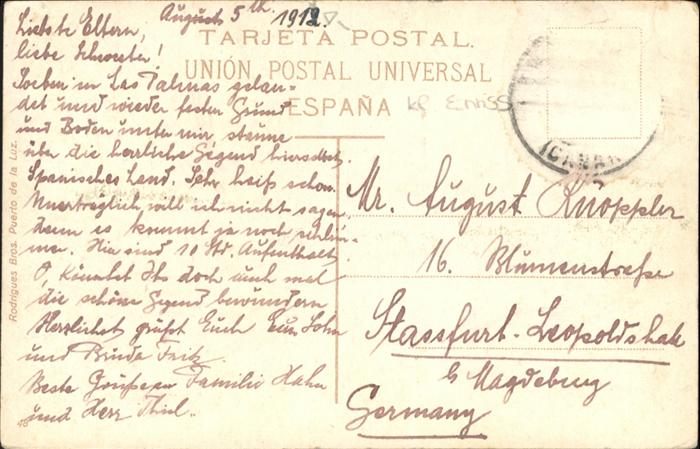 August 5th 1912.
TARJETA POSTAL.
UNIÓN POSTAL UNIVERSAL
ESPAÑA
Liebste Eltern,
liebe Schwester!
Soeben in Las Palmas gelan-
det und wieder festen Grund
und Boden unter mir, staune
über die herrliche Gegend hierselbst.
Spanisches Land. Sehr heiß schon.
Unerträglich will ich nicht sagen,
denn es kommt ja noch schlim-
mer. Hier sind 10 Std. Aufenthalt.
O, könntet Ihr doch auch mal
die schöne Gegend bewundern
Herzlichst grüßt Euch Euer Sohn
und Bruder Fritz.
Beste Grüße an Familie Hahn
und Herr Thiel.
Mr. August Knoppler
16. Blumenstraße
Stassfurt-Leopoldshall
b/ Magdeburg
Germany
Rodrigues Bros. Puerto de la Luz.
48